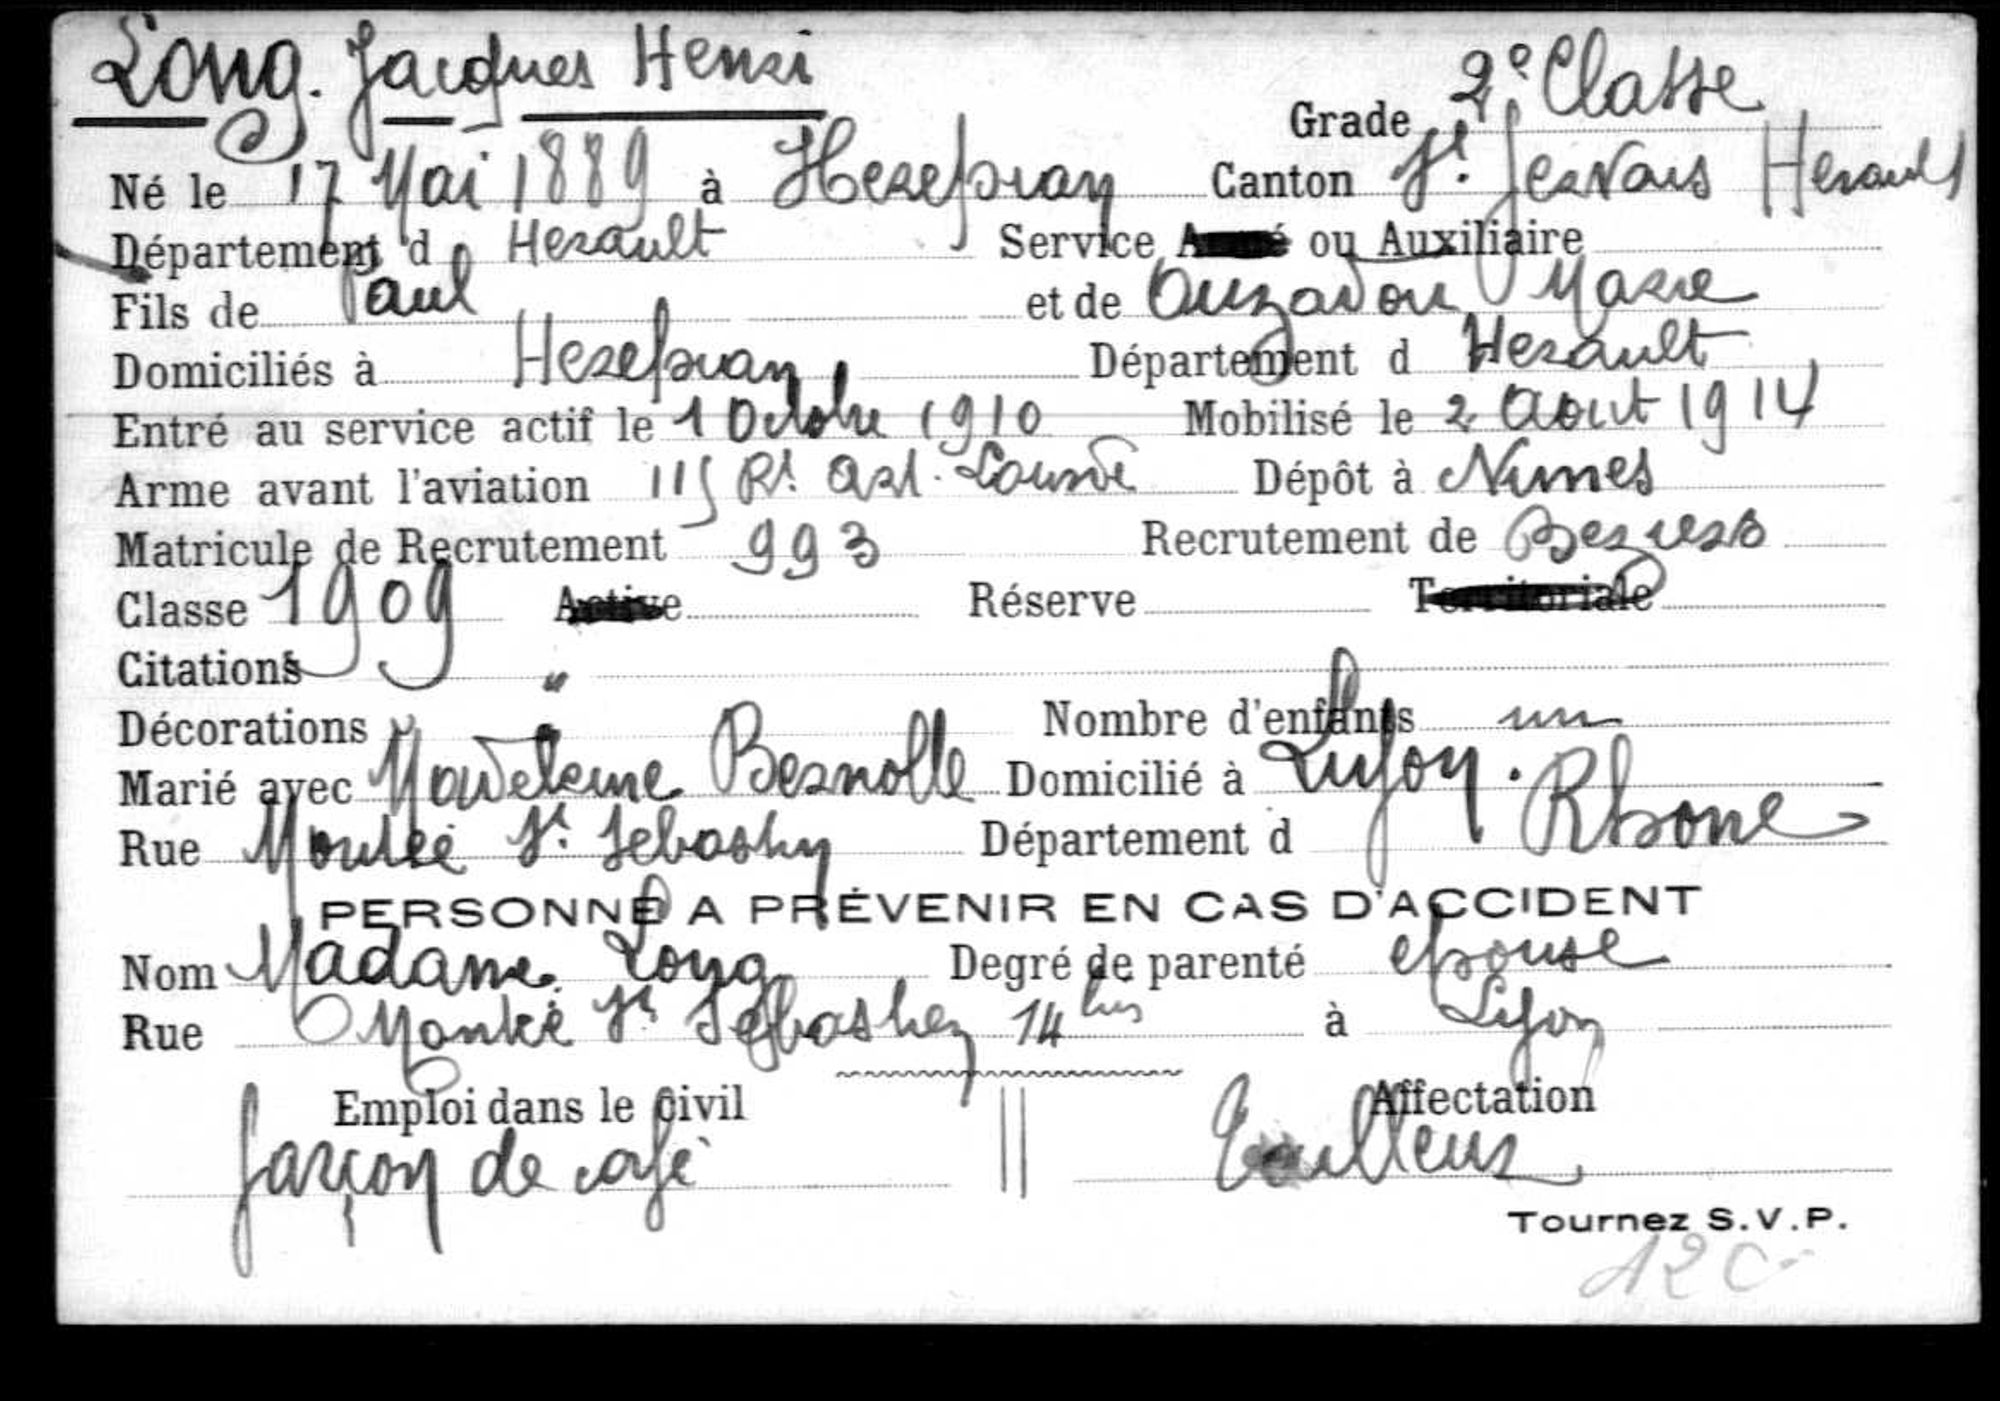 Long. Jacques Henri
Grade 2e Classe
Né le 17 Mai 1889 à Herepian Canton St. Gervais Herault
Département d Herault Service Armé ou Auxiliaire
Fils de Paul et de Ouzadou Marie
Domiciliés à Herepian Département d Herault
Entré au service actif le 1 Octobre 1910 Mobilisé le 2 Aout 1914
Arme avant l'aviation 115 Rt. Art. Lourde Dépôt à Nimes
Matricule de Recrutement 993 Recrutement de Beziers
Classe 1909 Active Réserve Territoriale
Citations "
Décorations " Nombre d'enfants un
Marié avec Madeleine Bernolle Domicilié à Lyon.
Rue Montée St. Sebastien Département d Rhone
PERSONNE A PRÉVENIR EN CAS D'ACCIDENT
Nom Madame Long Degré de parenté epouse
Rue Montée St Sebastien 14 bis à Lyon
Emploi dans le civil Affectation
garçon de café Tailleur
Tournez S.V.P.